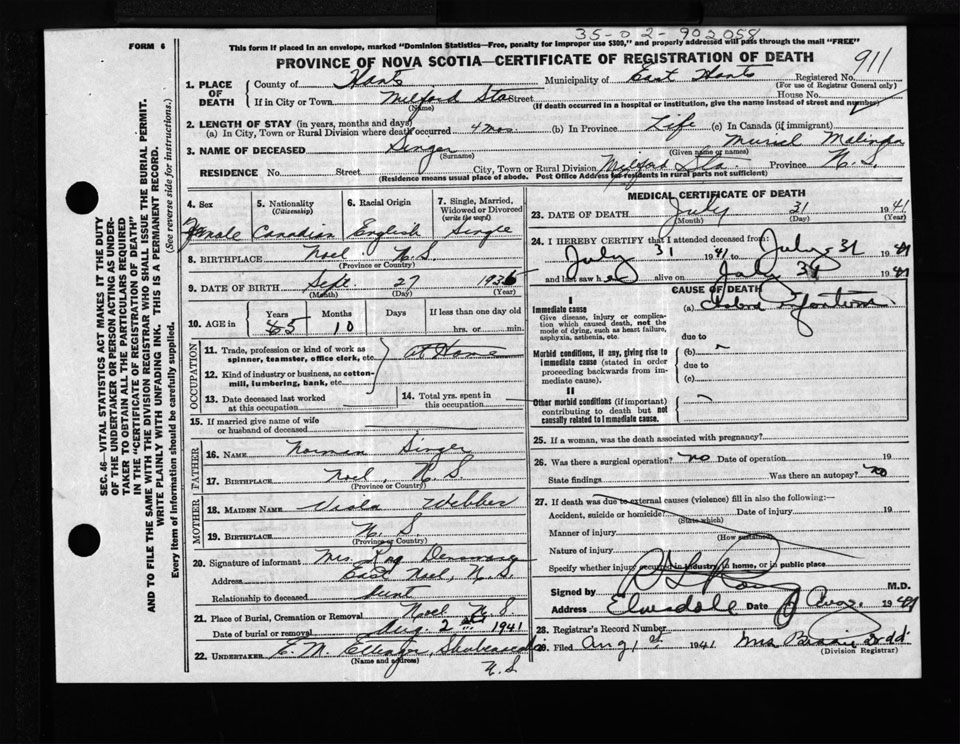 35-02-902058
FORM 6
This form if placed in an envelope, marked "Dominion Statistics—Free, penalty for improper use $300," and properly addressed will pass through the mail "FREE"
PROVINCE OF NOVA SCOTIA—CERTIFICATE OF REGISTRATION OF DEATH
911
1. PLACE OF DEATH
County of Hants Municipality of East Hants Registered No.
(For use of Registrar General only)
If in City or Town Milford Sta Street House No.
(Name) (If death occurred in a hospital or institution, give the name instead of street and number)
2. LENGTH OF STAY (in years, months and days)
(a) In City, Town or Rural Division where death occurred 4 mos. (b) In Province Life (c) In Canada (if immigrant)
3. NAME OF DECEASED Singer Muriel Malinda
(Surname) (Given name or names)
RESIDENCE No. Street City, Town or Rural Division Milford Sta. Province N. S.
(Residence means usual place of abode. Post Office Address for residents in rural parts not sufficient)
4. Sex
Female
5. Nationality
(Citizenship)
Canadian
6. Racial Origin
English
7. Single, Married, Widowed or Divorced
(write the word)
Single
8. BIRTHPLACE Noel N.S.
(Province or Country)
9. DATE OF BIRTH Sept. 27 193
(Month) (Day) (Year)
10. AGE in
Years Months Days If less than one day old
5 10 hrs. or min.
OCCUPATION
11. Trade, profession or kind of work as spinner, teamster, office clerk, etc. at Home
12. Kind of industry or business, as cotton-mill, lumbering, bank, etc.
13. Date deceased last worked at this occupation
14. Total yrs. spent in this occupation
15. If married give name of wife or husband of deceased
FATHER
16. NAME Norman Singer
17. BIRTHPLACE Noel, N. S.
(Province or Country)
MOTHER
18. MAIDEN NAME Viola Webber
19. BIRTHPLACE N. S.
(Province or Country)
20. Signature of informant Mrs Ray
Address East Noel, N. S.
Relationship to deceased Aunt
21. Place of Burial, Cremation or Removal Noel N. S
Date of burial or removal Aug. 2 1941
22. UNDERTAKER E. M.
(Name and address)
N. S
MEDICAL CERTIFICATE OF DEATH
23. DATE OF DEATH July 31 1941
(Month) (Day) (Year)
24. I HEREBY CERTIFY that I attended deceased from:
July 31 1941 to July 31 1941
and last saw her alive on July 31 1941
CAUSE OF DEATH
I
Immediate cause
Give disease, injury or complication which caused death, not the mode of dying, such as heart failure, asphyxia, asthenia, etc.
(a)
due to
Morbid conditions, if any, giving rise to immediate cause (stated in order proceeding backwards from immediate cause).
(b)
due to
(c)
II
Other morbid conditions (if important) contributing to death but not causally related to immediate cause.
25. If a woman, was the death associated with pregnancy?
26. Was there a surgical operation? no Date of operation 19
State findings Was there an autopsy? no
27. If death was due to external causes (violence) fill in also the following:—
Accident, suicide or homicide? Date of injury 19
(State which)
Manner of injury
(How sustained)
Nature of injury
Specify whether injury occurred in industry, in home, or in public place
Signed by M.D.
Address Elmsdale Date Aug. 1941
28. Registrar's Record Number
29. Filed Aug, 1st 1941 Mrs
(Division Registrar)
SEC. 46—VITAL STATISTICS ACT MAKES IT THE DUTY
OF THE UNDERTAKER OR PERSON ACTING AS UNDER-
TAKER TO OBTAIN ALL THE PARTICULARS REQUIRED
IN THE "CERTIFICATE OF REGISTRATION OF DEATH"
AND TO FILE THE SAME WITH THE DIVISION REGISTRAR WHO SHALL ISSUE THE BURIAL PERMIT.
WRITE PLAINLY WITH UNFADING INK. THIS IS A PERMANENT RECORD.
Every item of information should be carefully supplied. (See reverse side for instructions.)